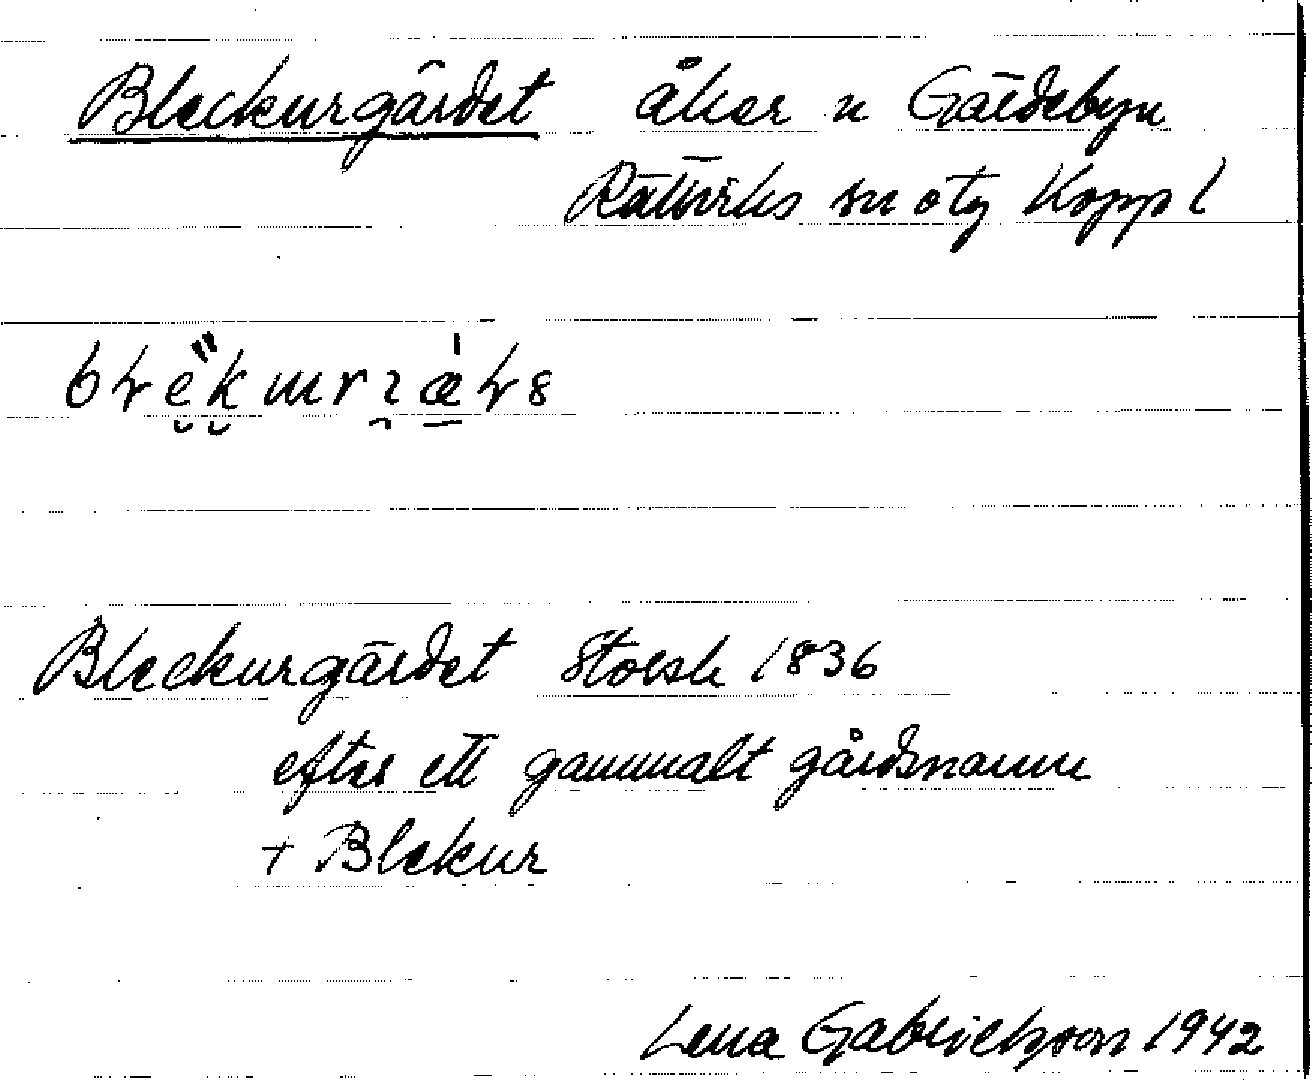 Bleckurgärdet åker n Gärdebyn
Rättviks sn otg Kopp l
Bleckurgärdet Storsk 1836
efter ett gammalt gårdsnamn
+ Blekur
Lena Gabrielsson 1942